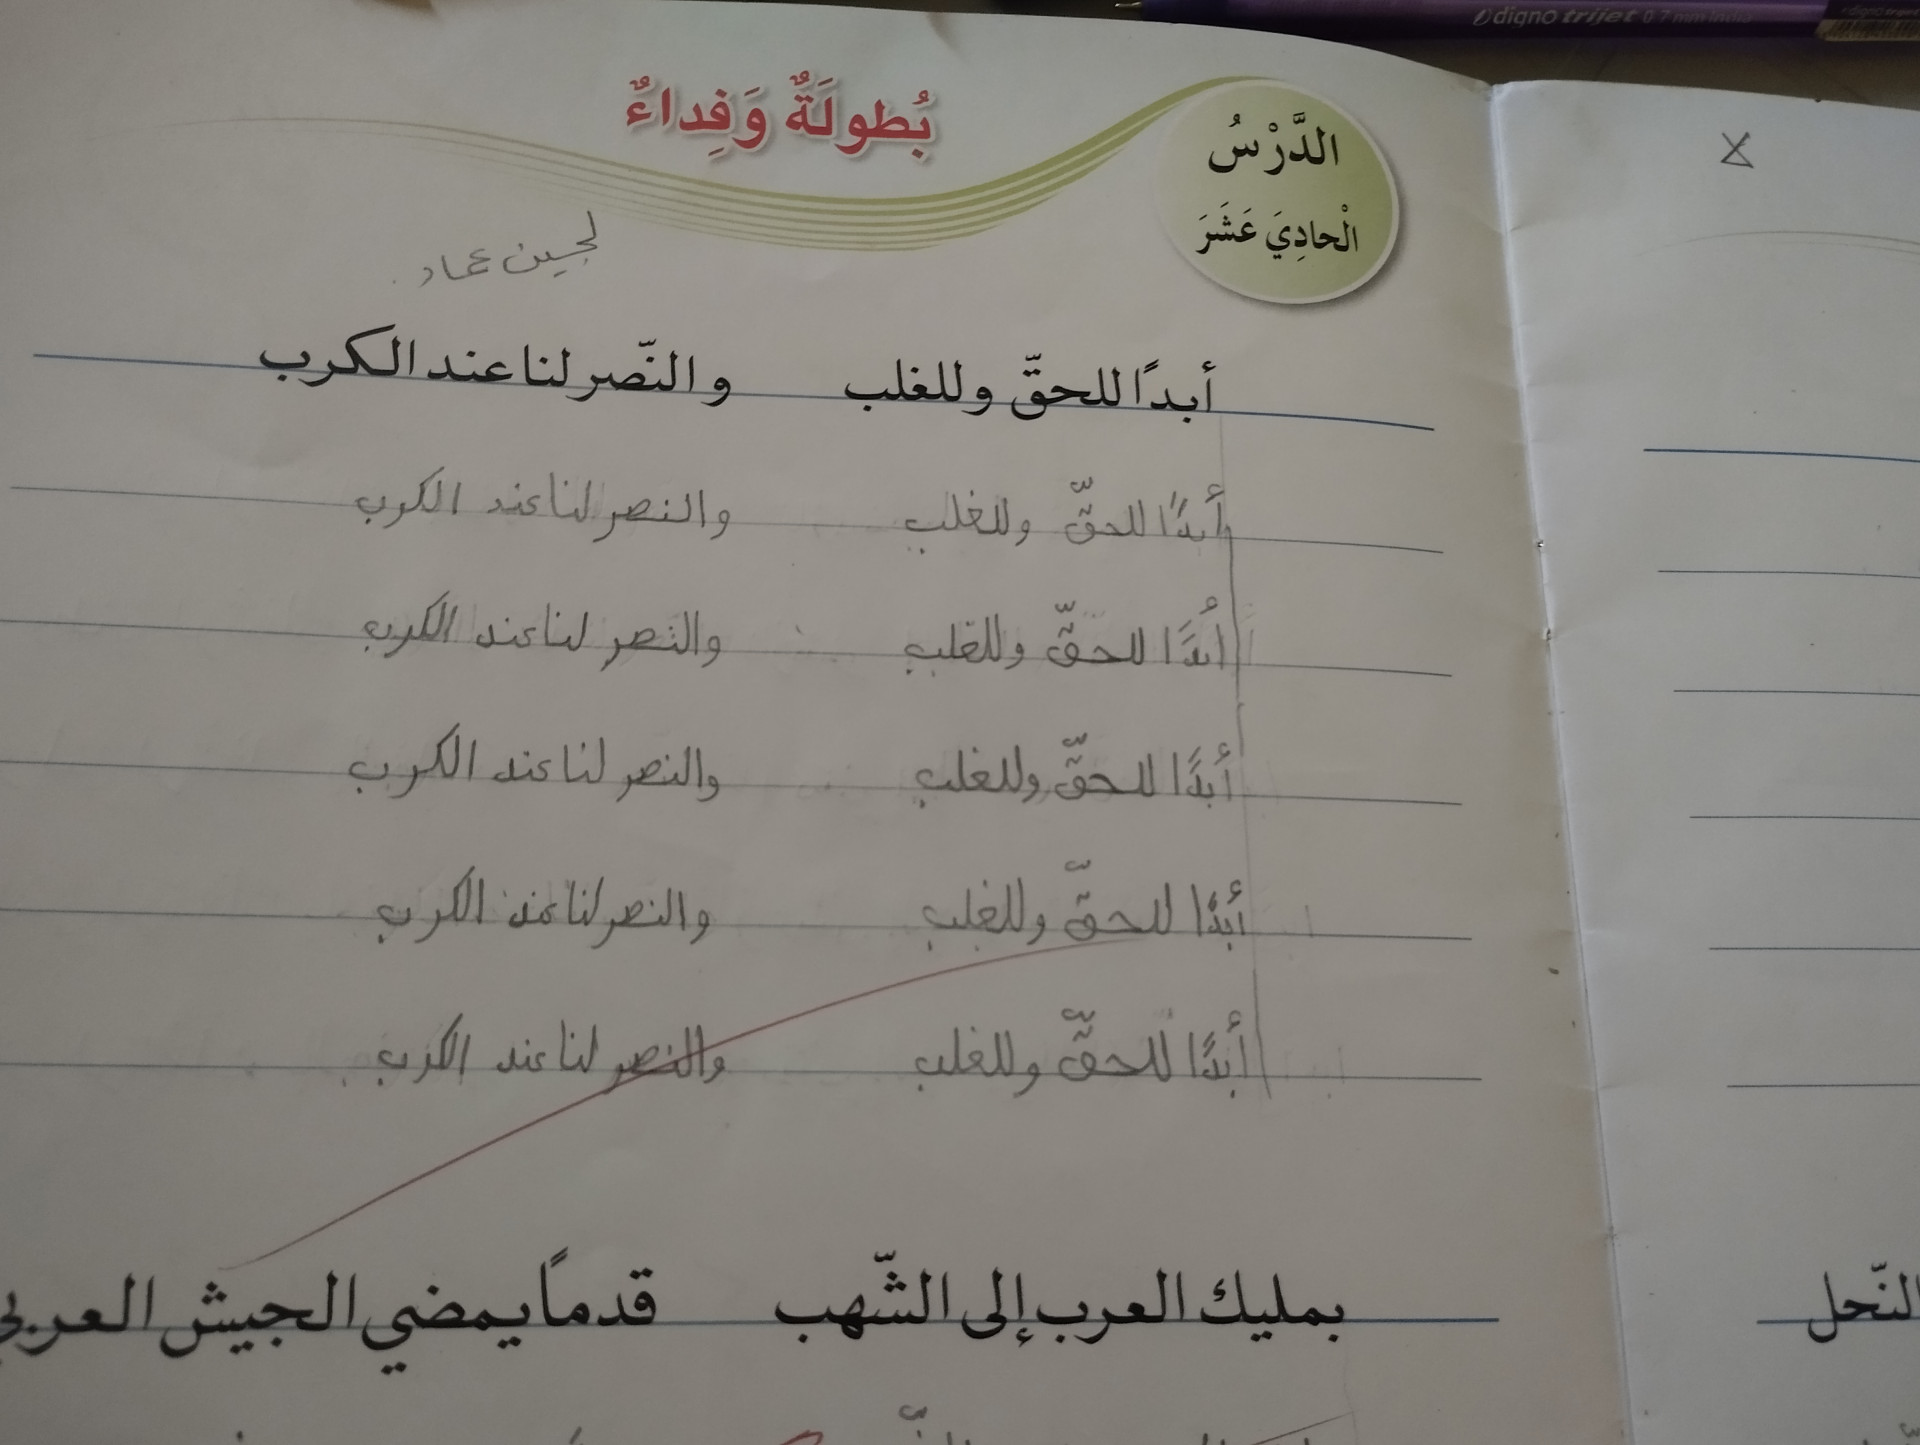 digno trijet 0.7 mm India
الدَّرْسُ
الْحادِيَ عَشَرَ
بُطولَةٌ وَفِداءٌ
لجين عماد
أبدًا للحقّ وللغلب والنّصر لنا عند الكرب
أبدًا للحقّ وللغلب والنصر لنا عند الكرب
أُبدًا للحقّ وللقلب والنصر لنا عند الكرب
أبدًا للحقّ وللغلب والنصر لنا عند الكرب
أبدًا للحقّ وللغلب والنصر لنا عند الكرب
أبدًا للحقّ وللغلب والنصر لنا عند الكرب
بمليك العرب إلى الشّهب قدماً يمضي الجيش العربي
النّحل